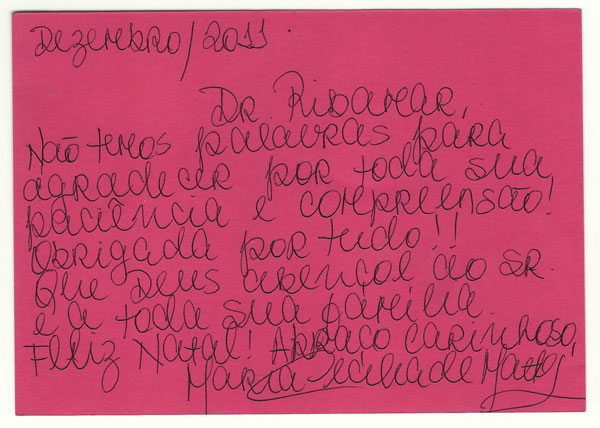 Dezembro/2011
Dr. Ribamar,
Não temos palavras para
agradecer por toda sua
paciência e compreensão!
Obrigada por tudo!!
Que Deus abençoe ao Sr.
e a toda sua família.
Feliz Natal! Abraço carinhoso,
Maria